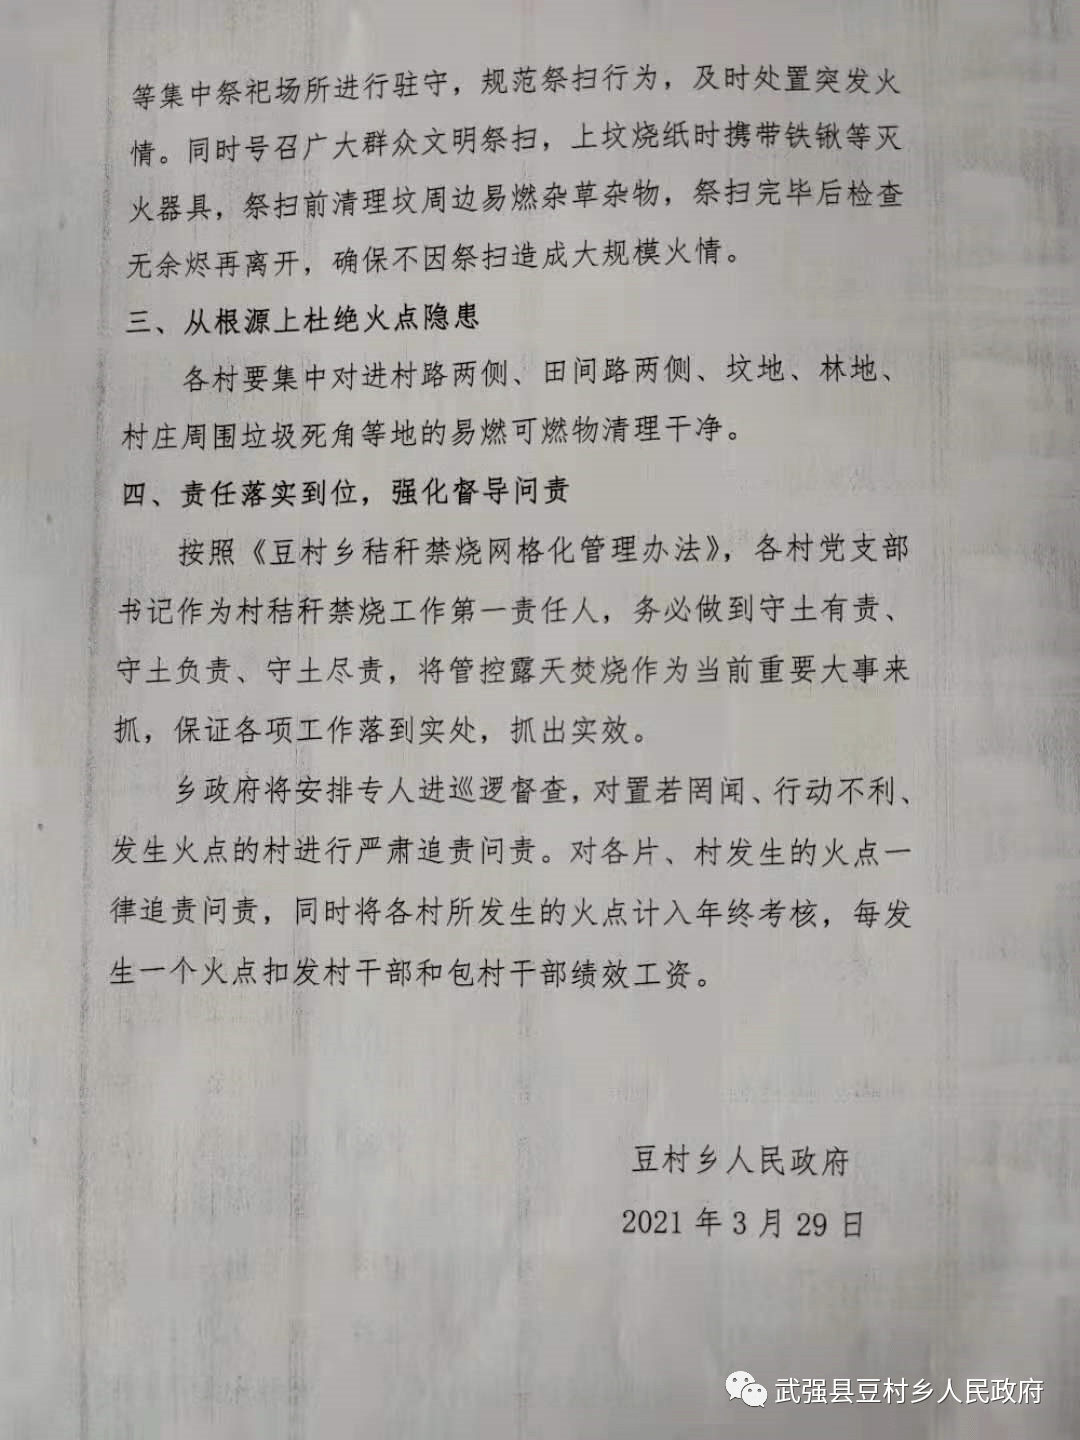 等集中祭祀场所进行驻守，规范祭扫行为，及时处置突发火
情。同时号召广大群众文明祭扫，上坟烧纸时携带铁锹等灭
火器具，祭扫前清理坟周边易燃杂草杂物，祭扫完毕后检查
无余烬再离开，确保不因祭扫造成大规模火情。
三、从根源上杜绝火点隐患
各村要集中对进村路两侧、田间路两侧、坟地、林地、
村庄周围垃圾死角等地的易燃可燃物清理干净。
四、责任落实到位，强化督导问责
按照《豆村乡秸秆禁烧网格化管理办法》，各村党支部
书记作为村秸秆禁烧工作第一责任人，务必做到守土有责、
守土负责、守土尽责，将管控露天焚烧作为当前重要大事来
抓，保证各项工作落到实处，抓出实效。
乡政府将安排专人进巡逻督查，对置若罔闻、行动不利、
发生火点的村进行严肃追责问责。对各片、村发生的火点一
律追责问责，同时将各村所发生的火点计入年终考核，每发
生一个火点扣发村干部和包村干部绩效工资。
豆村乡人民政府
2021年3月29日
武强县豆村乡人民政府